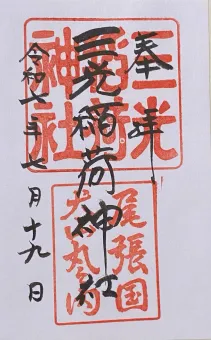 奉拝
三光稲荷神社
令和七年七月十九日
三光稲荷神社
尾張国犬山丸の内